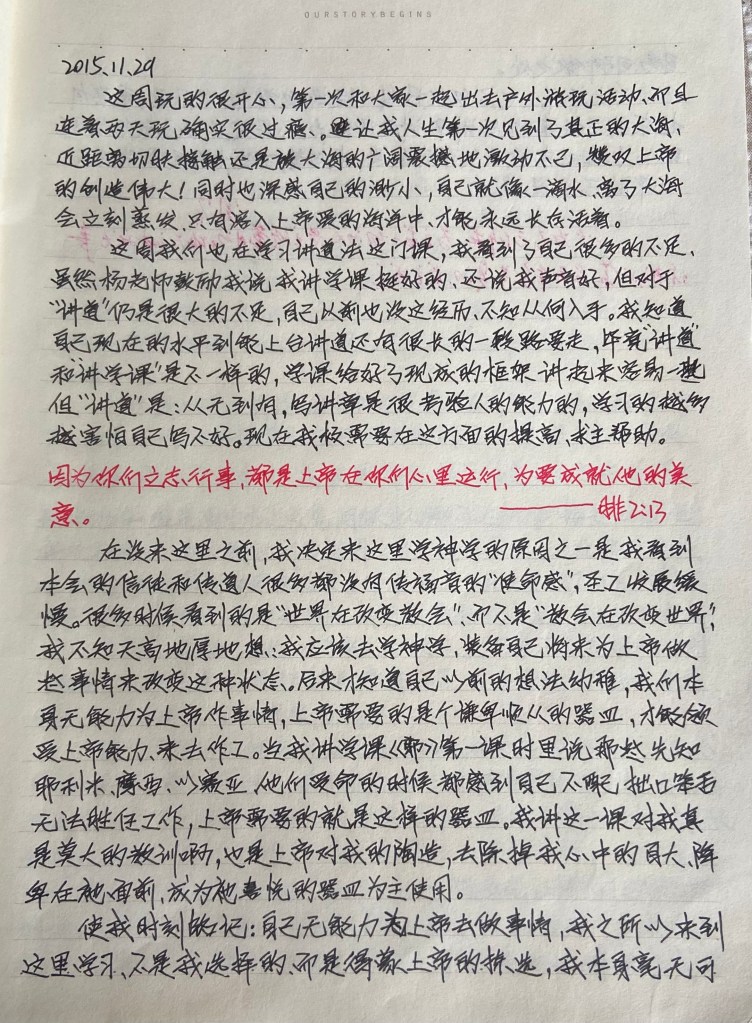 OURSTORYBEGINS
2015.11.29
这周玩的很开心,第一次和大家一起出去户外游玩活动,而且
连着两天玩确实很过瘾。这让我人生第一次见到了真正的大海,
近距离切肤接触还是被大海的广阔震撼地激动不已,赞叹上帝
的创造伟大!同时也深感自己的渺小,自己就像一滴水,离了大海
会立刻蒸发,只有溶入上帝爱的海洋中,才能永远长存活着。
这周我们也在学习讲道法这门课,我看到了自己很多的不足,
虽然杨老师鼓励我说我讲学课挺好的、还说我声音好,但对于
“讲道”仍是很大的不足,自己以前也没这经历,不知从何入手。我知道
自己现在的水平到能上台讲道还有很长的一段路要走,毕竟“讲道”
和“讲学课”是不一样的,学课给好了现成的框架讲起来容易一些
但“讲道”是:从无到有,写讲章是很考验人的能力的,学习的越多
越害怕自己写不好。现在我很需要在这方面的提高,求主帮助。
因为你们立志行事,都是上帝在你们心里运行,为要成就他的美
意。 ——腓2:13
在没来这里之前,我决定来这里学神学的原因之一是我看到
本会的信徒和传道人很多都没有传福音的“使命感”,圣工发展缓
慢。很多时候看到的是“世界在改变教会”,而不是“教会在改变世界”,
我不知天高地厚地想:我应该去学神学,装备自己将来为上帝做
些事情来改变这种状态。后来才知道自己以前的想法幼稚,我们本
身无能力为上帝作事情,上帝需要的是个谦卑顺从的器皿,才能领
受上帝能力、来去作工。当我讲学课《耶》第一课时里说那些先知
耶利米、摩西、以赛亚,他们受命的时候都感到自己不配,拙口笨舌
无法胜任工作,上帝需要的就是这样的器皿。我讲这一课对我真
是莫大的教训啊,也是上帝对我的陶造,去除掉我心中的自大、降
卑在祂面前,成为祂喜悦的器皿为主使用。
使我时刻铭记:自己无能力为上帝去做事情,我之所以来到
这里学习、不是我选择的,而是得蒙上帝的拣选,我本身毫无可